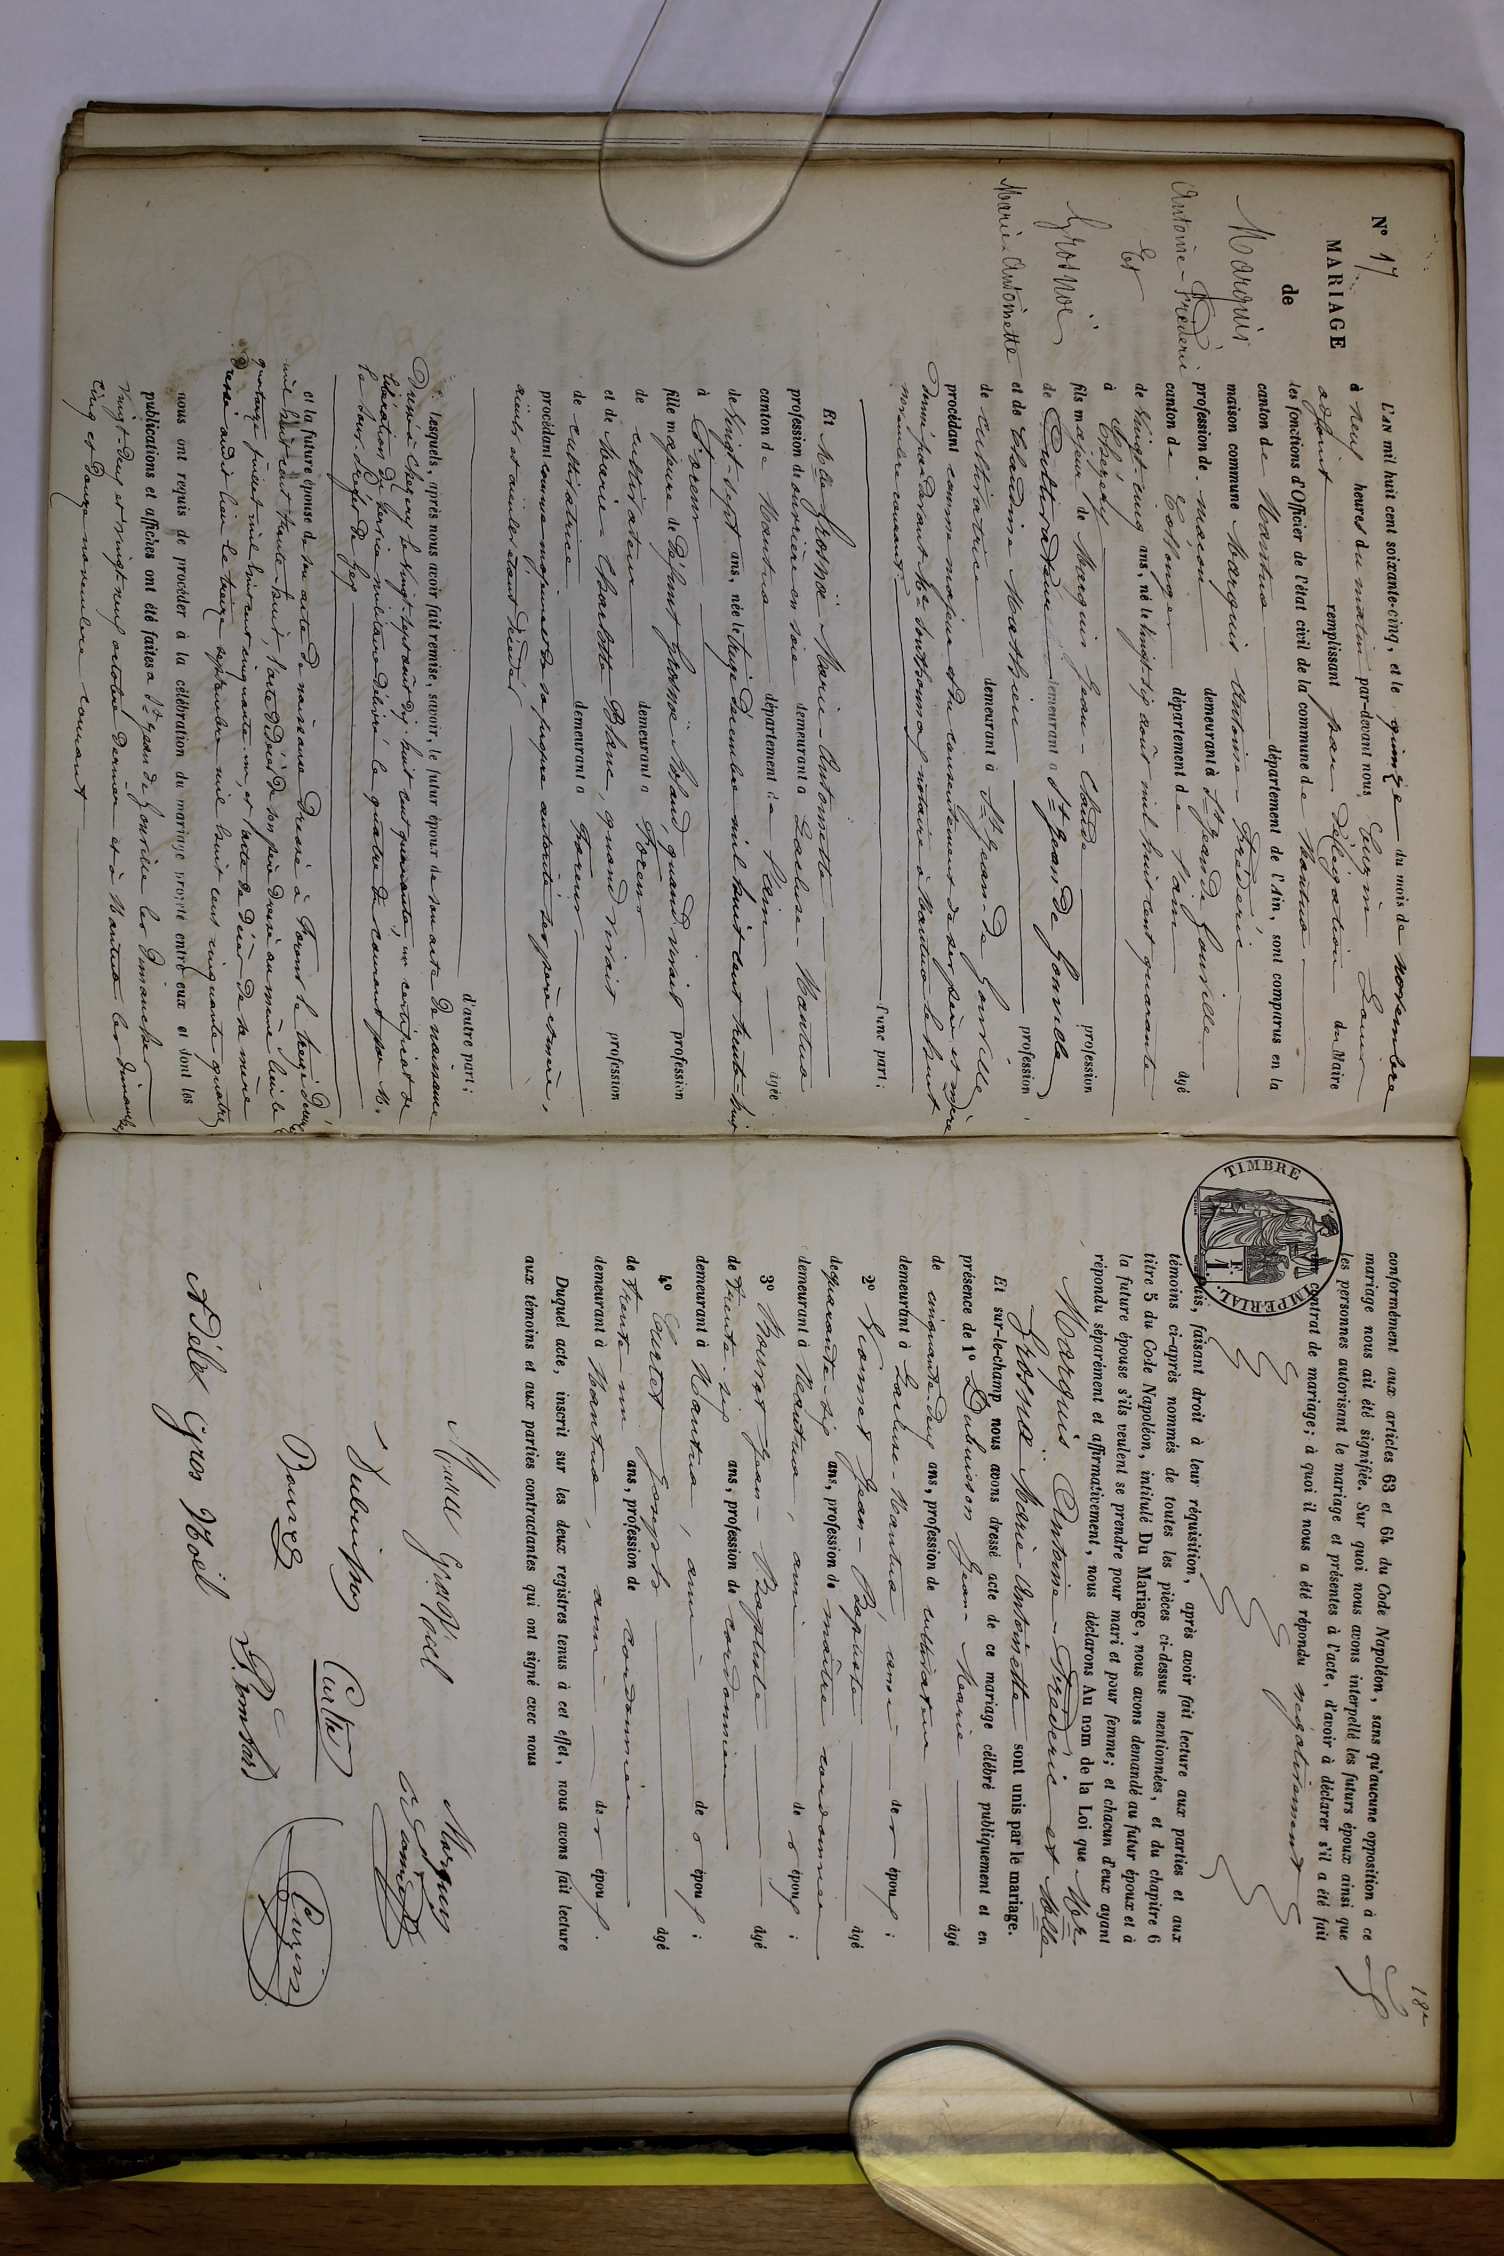 N° 17
MARIAGE
de
Marquis
Antoine-Fréderic
Et
Grosnoë
Marie-Antoinette
L'an mil huit cent soixante-cinq, et le quinze du mois de novembre
à neuf heures du matin par-devant nous
adjoint remplissant par délégation du Maire
les fonctions d'Officier de l'état civil de la commune de Nantua
canton de Nantua département de l'Ain, sont comparus en la
maison commune Marquis Antoine-Fréderic
profession de maçon demeurant à St Jean de Gonville
canton de Collonges département de l'ain âgé
de vingt-cinq ans, né le vingt-six août mil huit cent quarante
à Chézery
fils majeur de Marquis Jean-Claude profession
de Cultivateur demeurant à St Jean de Gonville
et de Claudine Mathieu profession
de cultivatrice demeurant à St Jean-de Gonville
procédant comme majeur et du consentement de ses père et mère
donné par devant Me notaire à Nantua le huit
novembre courant
d'une part;
Et Melle Grosnoë Marie-Antoinette
profession de ouvrière en soie demeurant à Lacluse-Nantua
canton de Nantua département de l'ain âgée
de vingt-sept ans, née le treize décembre mil huit cent trente-huit
à Forens
fille majeure de défunt Grosnoë quand vivait profession
de cultivateur demeurant à Forens
et de Marie Charlotte Blanc, quand vivait profession
de cultivatrice demeurant à Forens
procédant comme majeure de sa propre autorité ses père et mère,
aieuls et aieules étant décédés
d'autre part;
lesquels, après nous avoir fait remise, savoir, le futur époux de son acte de naissance
dressé à Chézery le vingt-sept août dix huit cent quarante, un certificat de
libération du service militaire délivré le quatre du courant par M.
le sous-Préfet de Gex
et la future épouse de son acte de naissance dressé à Forens le treize décembre
mil huit cent trente-huit, l'acte de décès de son père dressé au même lieu le
quatorze mil huit cent cinquante-un, et l'acte de décès de sa mère
dressé audit lieu le treize septembre mil huit cent cinquante quatre
nous ont requis de procéder à la célébration du mariage projeté entre eux et dont les
publications et affiches ont été faites à St Jean de Gonville les Dimanches
vingt-deux et vingt neuf octobre dernier et à Nantua les dimanches
cinq et douze novembre courant
18e
conformément aux articles 63 et 64 du Code Napoléon, sans qu'aucune opposition à ce
mariage nous ait été signifiée. Sur quoi nous avons interpellé les futurs époux ainsi que
les personnes autorisant le mariage et présentes à l'acte, d'avoir à déclarer s'il a été fait
un contrat de mariage; à quoi il nous a été répondu négativement
TIMBRE IMPÉRIAL
1 F.
Puis, faisant droit à leur réquisition, après avoir fait lecture aux parties et aux
témoins ci-après nommés de toutes les pièces ci-dessus mentionnées, et du chapitre 6
titre 5 du Code Napoléon, intitulé Du Mariage, nous avons demandé au futur époux et à
la future épouse s'ils veulent se prendre pour mari et pour femme; et chacun d'eux ayant
répondu séparément et affirmativement, nous déclarons Au nom de la Loi que Mr
Marquis Antoine-Fréderic et Melle
Grosnoë Marie-Antoinette sont unis par le mariage.
Et sur-le-champ nous avons dressé acte de ce mariage célébré publiquement et en
présence de 1° Dubuisson Jean-Marie âgé
de cinquante-deux ans, profession de cultivateur
demeurant à Lacluse-Nantua ami des époux;
2° Jean-Baptiste âgé
de quarante-six ans, profession de maître cordonnier
demeurant à Nantua, ami des époux;
3° Bouvet Jean-Baptiste âgé
de trente-six ans, profession de cordonnier
demeurant à Nantua, ami des époux;
4° Curtet Joseph âgé
de trente-un ans, profession de cordonnier
demeurant à Nantua, ami des époux.
Duquel acte, inscrit sur les deux registres tenus à cet effet, nous avons fait lecture
aux témoins et aux parties contractantes qui ont signé avec nous
Marie Gros Noël
Marquis
Dubuisson
Curtet
Bouvet
Adèle Gros Noël